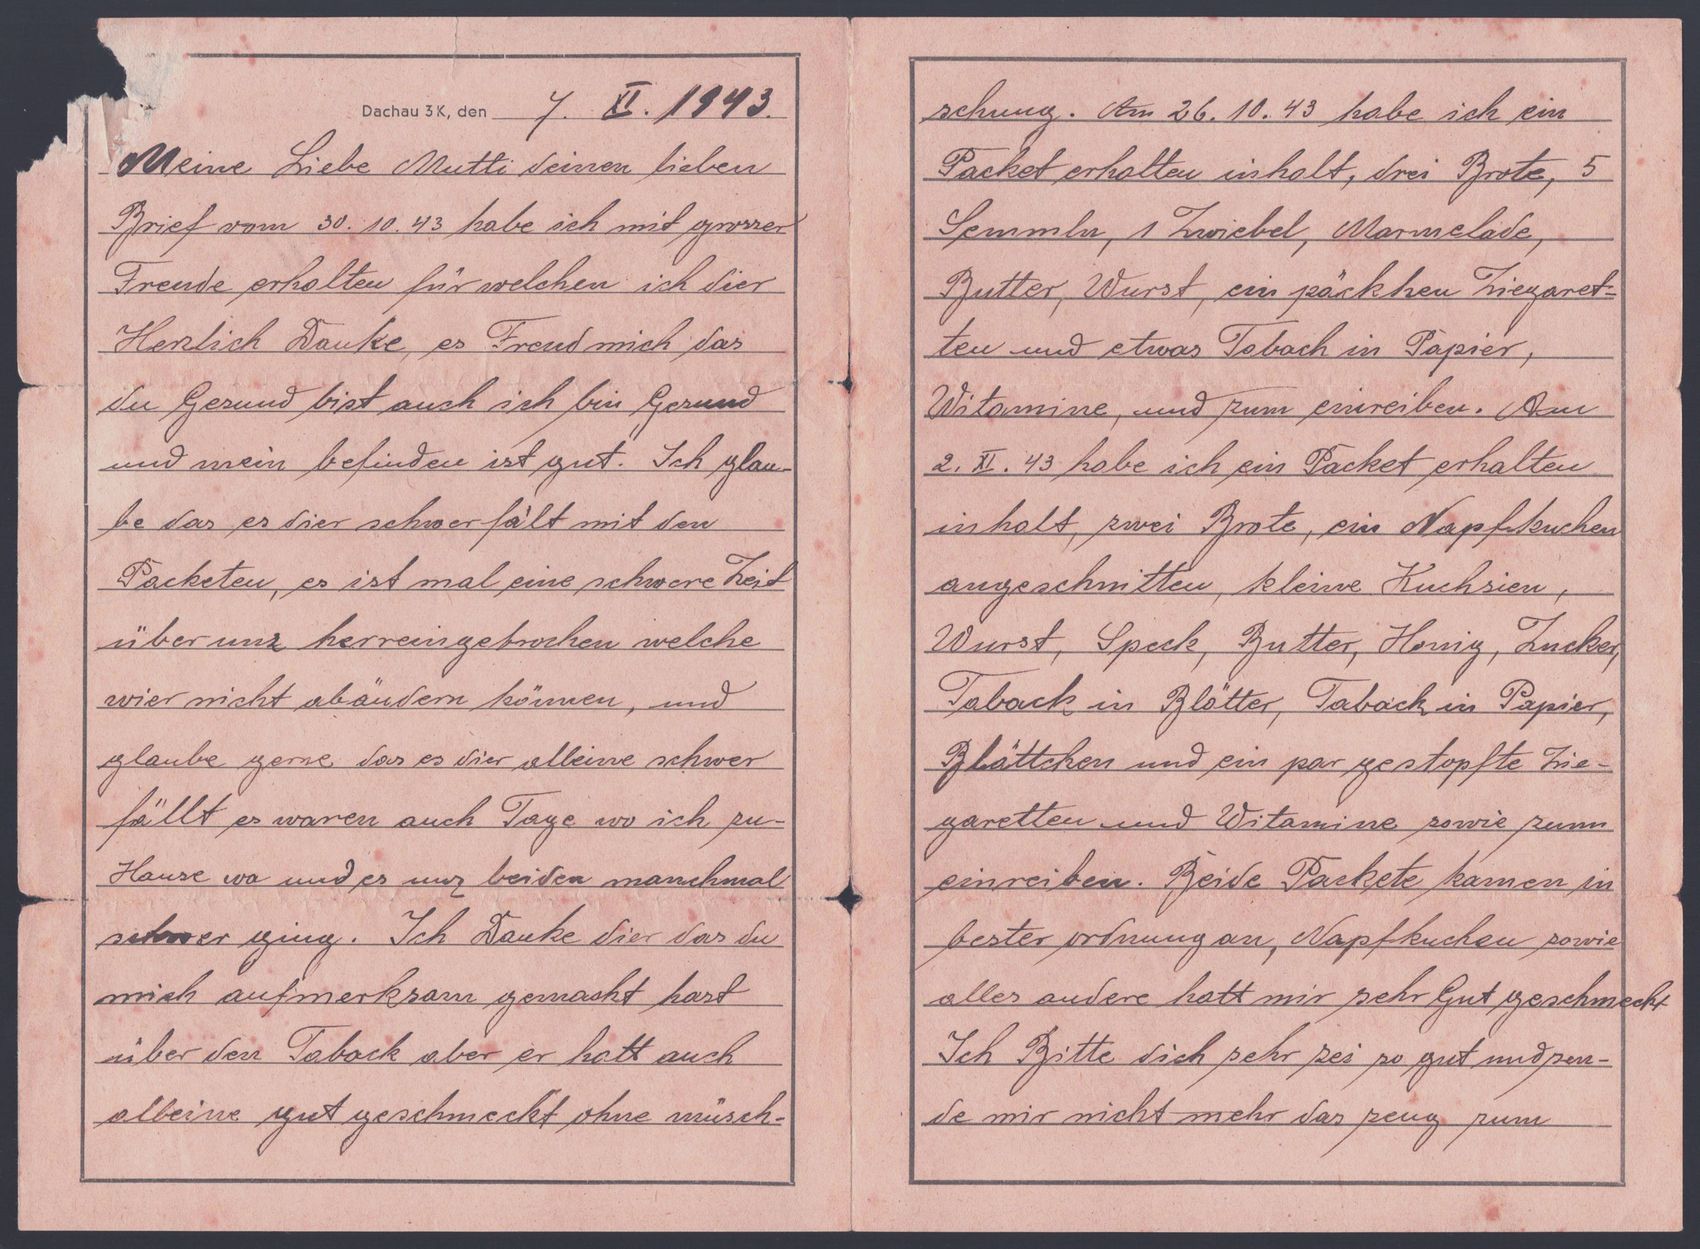 Dachau 3 K, den 7. XI. 1943.
Meine Liebe Mutti deinen lieben
Brief vom 30. 10. 43 habe ich mit grosser
Freude erhalten für welchen ich dier
Herzlich Danke, es Freud mich das
du Gesund bist auch ich bin Gesund
und mein befinden ist gut. Ich glau-
be das es dier schwer fält mit den
Packeten, es ist mal eine schwere Zeit
über unz herreingebrochen welche
wier nicht abändern können, und
glaube gerne das es dier alleine schwer
fällt es waren auch Tage wo ich zu-
Hause wa und es unz beiden manchmal
schwer ging. Ich Danke dier das du
mich aufmerksam gemacht hast
über den Taback aber er hatt auch
alleine gut geschmeckt ohne müsch-
schung. Am 26. 10. 43 habe ich ein
Packet erhalten inhalt, drei Brote, 5
Semmln, 1 Zwiebel, Marmelade,
Butter, Wurst, ein päckhen Ziegaret-
ten und etwas Tabach in Papier,
Witamine, und zum einreiben. Am
2. XI. 43 habe ich ein Packet erhalten
inhalt, zwei Brote, ein Napfkuchen
angeschnitten, kleine Kuchsien,
Wurst, Speck, Butter, Honig, Zucker,
Taback in Blätter, Taback in Papier,
Blättchen und ein par gestopfte Zie-
garetten und Witamine sowie zum
einreiben. Beide Packete kamen in
bester ordnung an, Napfkuchen sowie
alles andere hatt mir sehr Gut geschmeckt
Ich Bitte dich sehr sei so gut und sen-
de mir nicht mehr das zeug zum